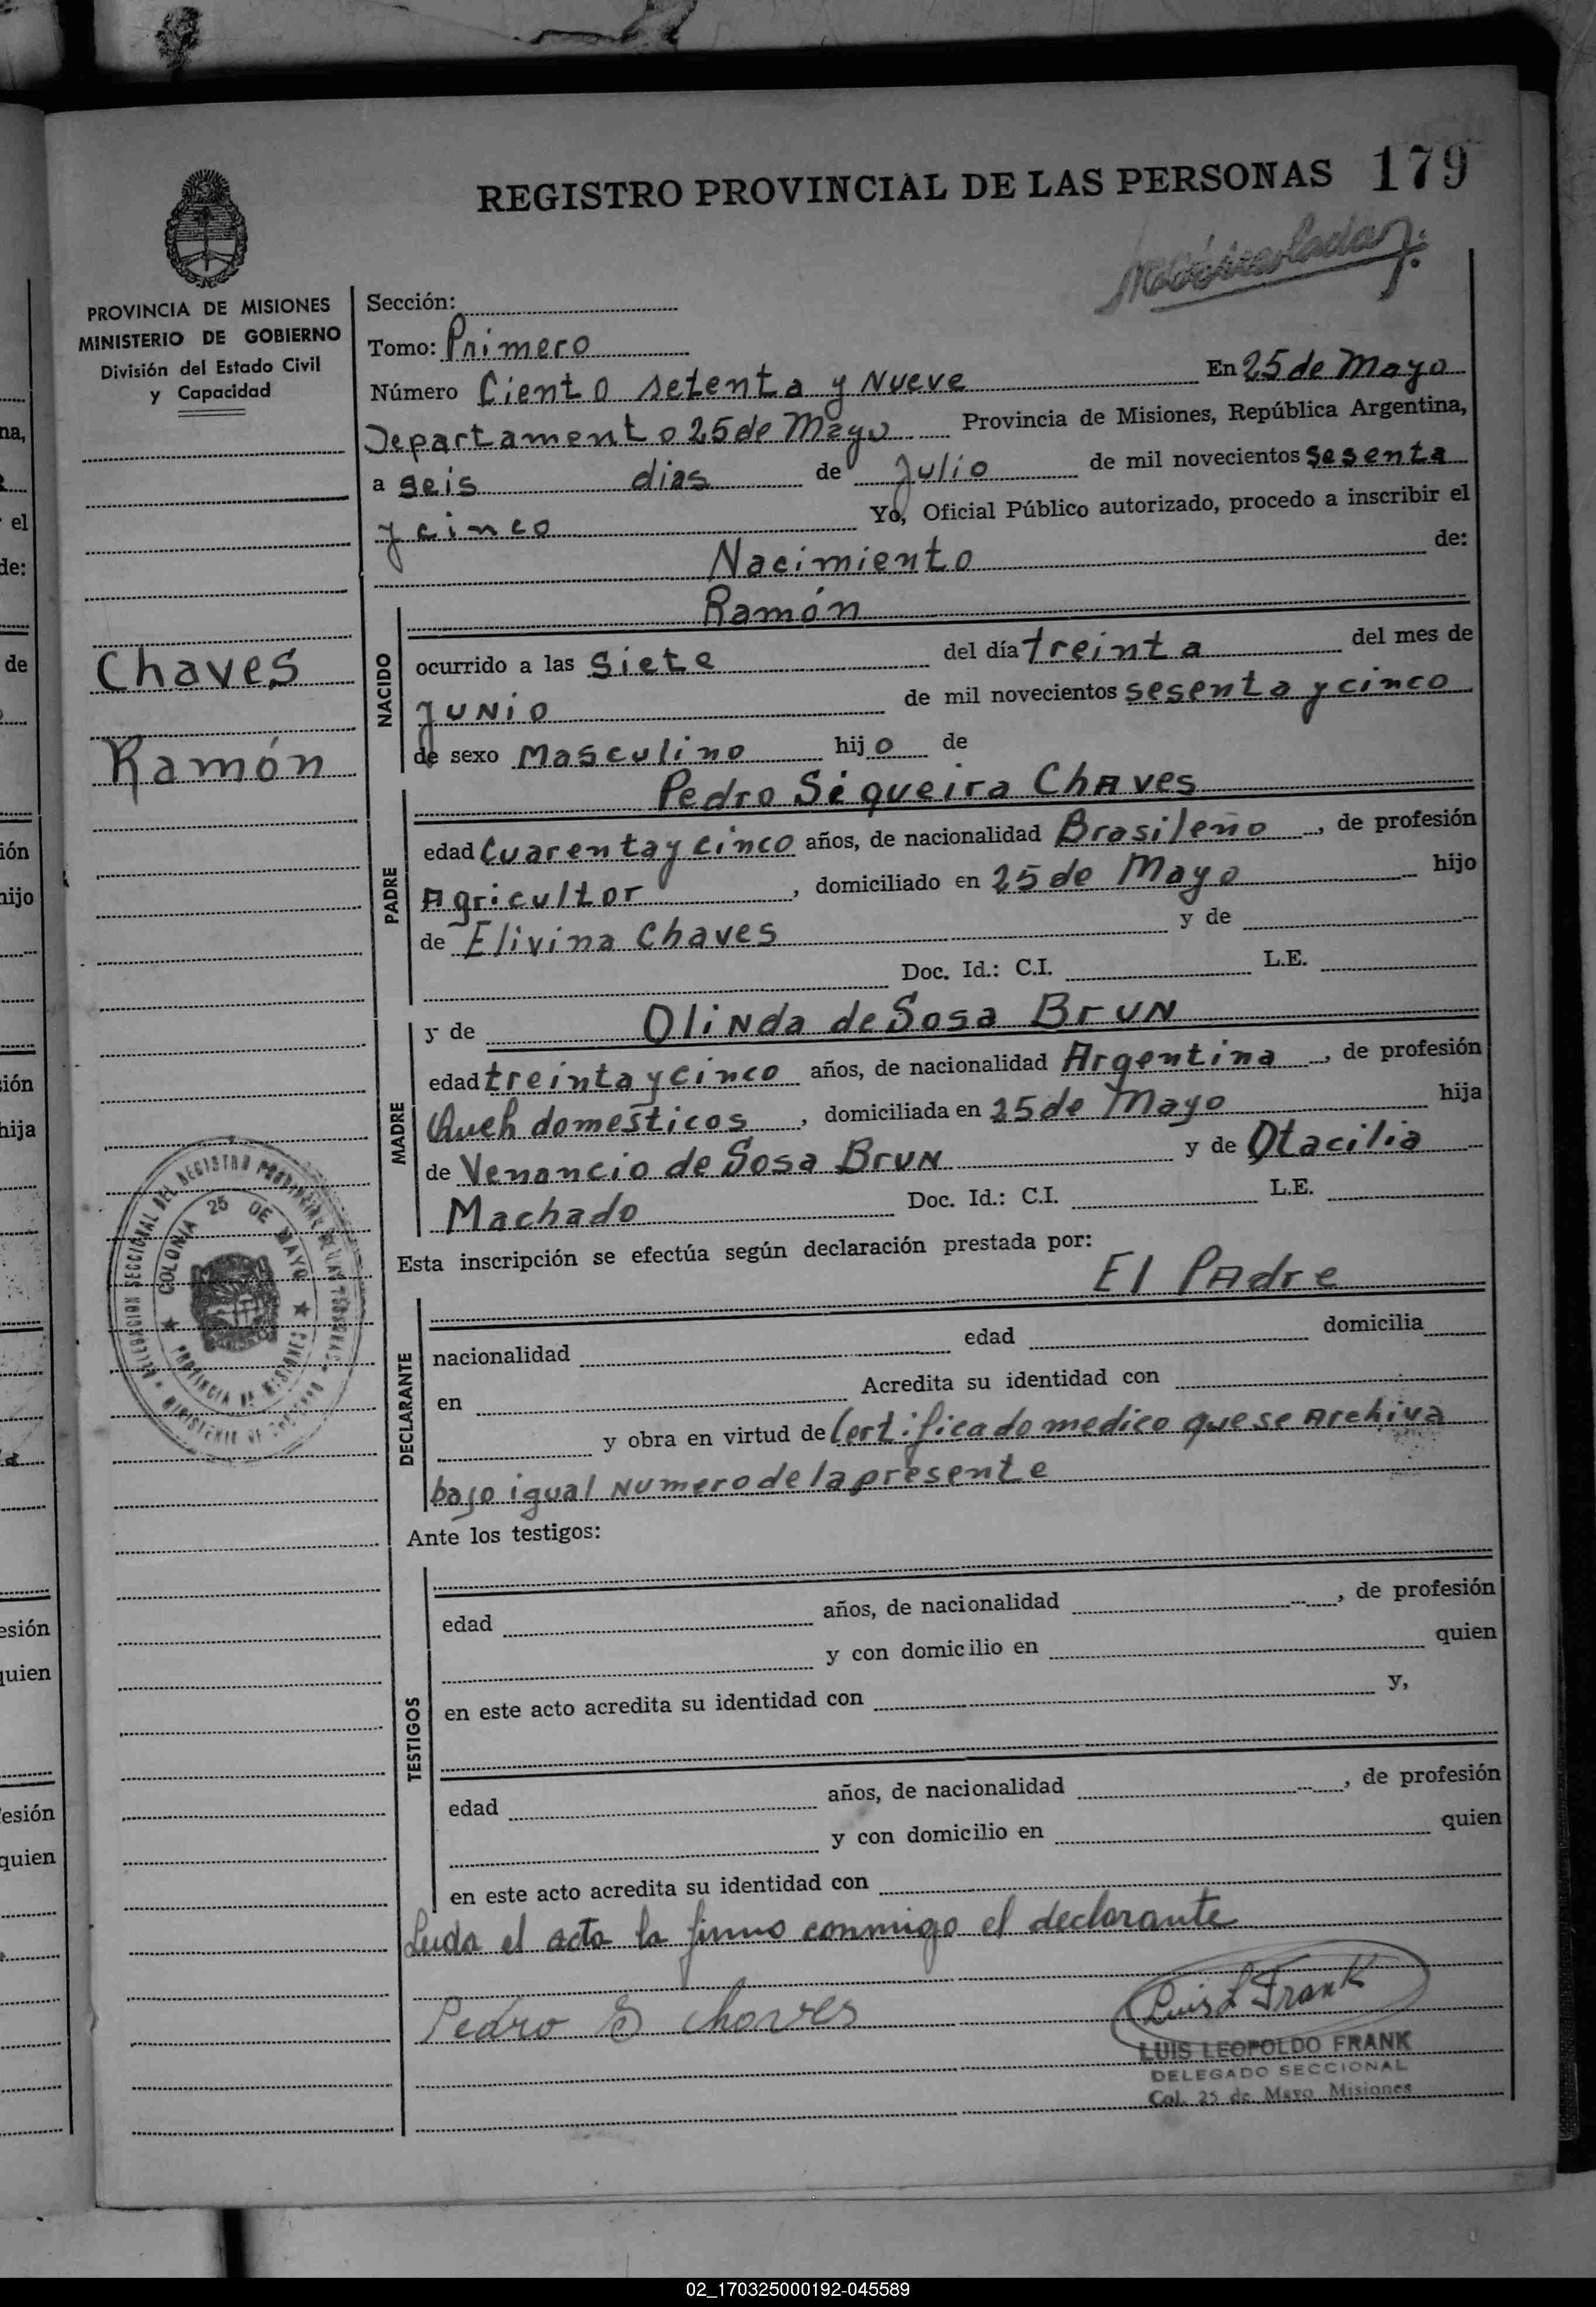 REGISTRO PROVINCIAL DE LAS PERSONAS 179
PROVINCIA DE MISIONES
MINISTERIO DE GOBIERNO
División del Estado Civil
y Capacidad
Chaves
Ramón
Sección:
Tomo: Primero
Número Ciento setenta y Nueve En 25 de Mayo
Departamento 25 de Mayo Provincia de Misiones, República Argentina,
a seis dias de Julio de mil novecientos sesenta
y cinco Yo, Oficial Público autorizado, procedo a inscribir el
Nacimiento de:
Ramón
NACIDO
ocurrido a las siete del día treinta del mes de
Junio de mil novecientos sesenta y cinco
de sexo Masculino hijo de
Pedro Siqueira Chaves
PADRE
edad Cuarenta y cinco años, de nacionalidad Brasileño, de profesión
Agricultor, domiciliado en 25 de Mayo hijo
de Elivina Chaves y de
Doc. Id.: C.I. L.E.
MADRE
y de Olinda de Sosa Brun
edad treinta y cinco años, de nacionalidad Argentina, de profesión
domesticos, domiciliada en 25 de Mayo hija
de Venancio de Sosa Brun y de Otacilia
Machado Doc. Id.: C.I. L.E.
Esta inscripción se efectúa según declaración prestada por:
El Padre
DECLARANTE
nacionalidad edad domicilia
en Acredita su identidad con
y obra en virtud de Certificado medico que se Archiva
bajo igual Numero de la presente
Ante los testigos:
TESTIGOS
edad años, de nacionalidad , de profesión
y con domicilio en quien
en este acto acredita su identidad con y,
edad años, de nacionalidad , de profesión
y con domicilio en quien
en este acto acredita su identidad con
Leida el acta la firma conmigo el declarante
Pedro S Chaves
Luis L Frank
LUIS LEOPOLDO FRANK
DELEGADO SECCIONAL
Col. 25 de Mayo Misiones
COLONIA 25 DE MAYO
PROVINCIA DE MISIONES
02_170325000192-045589